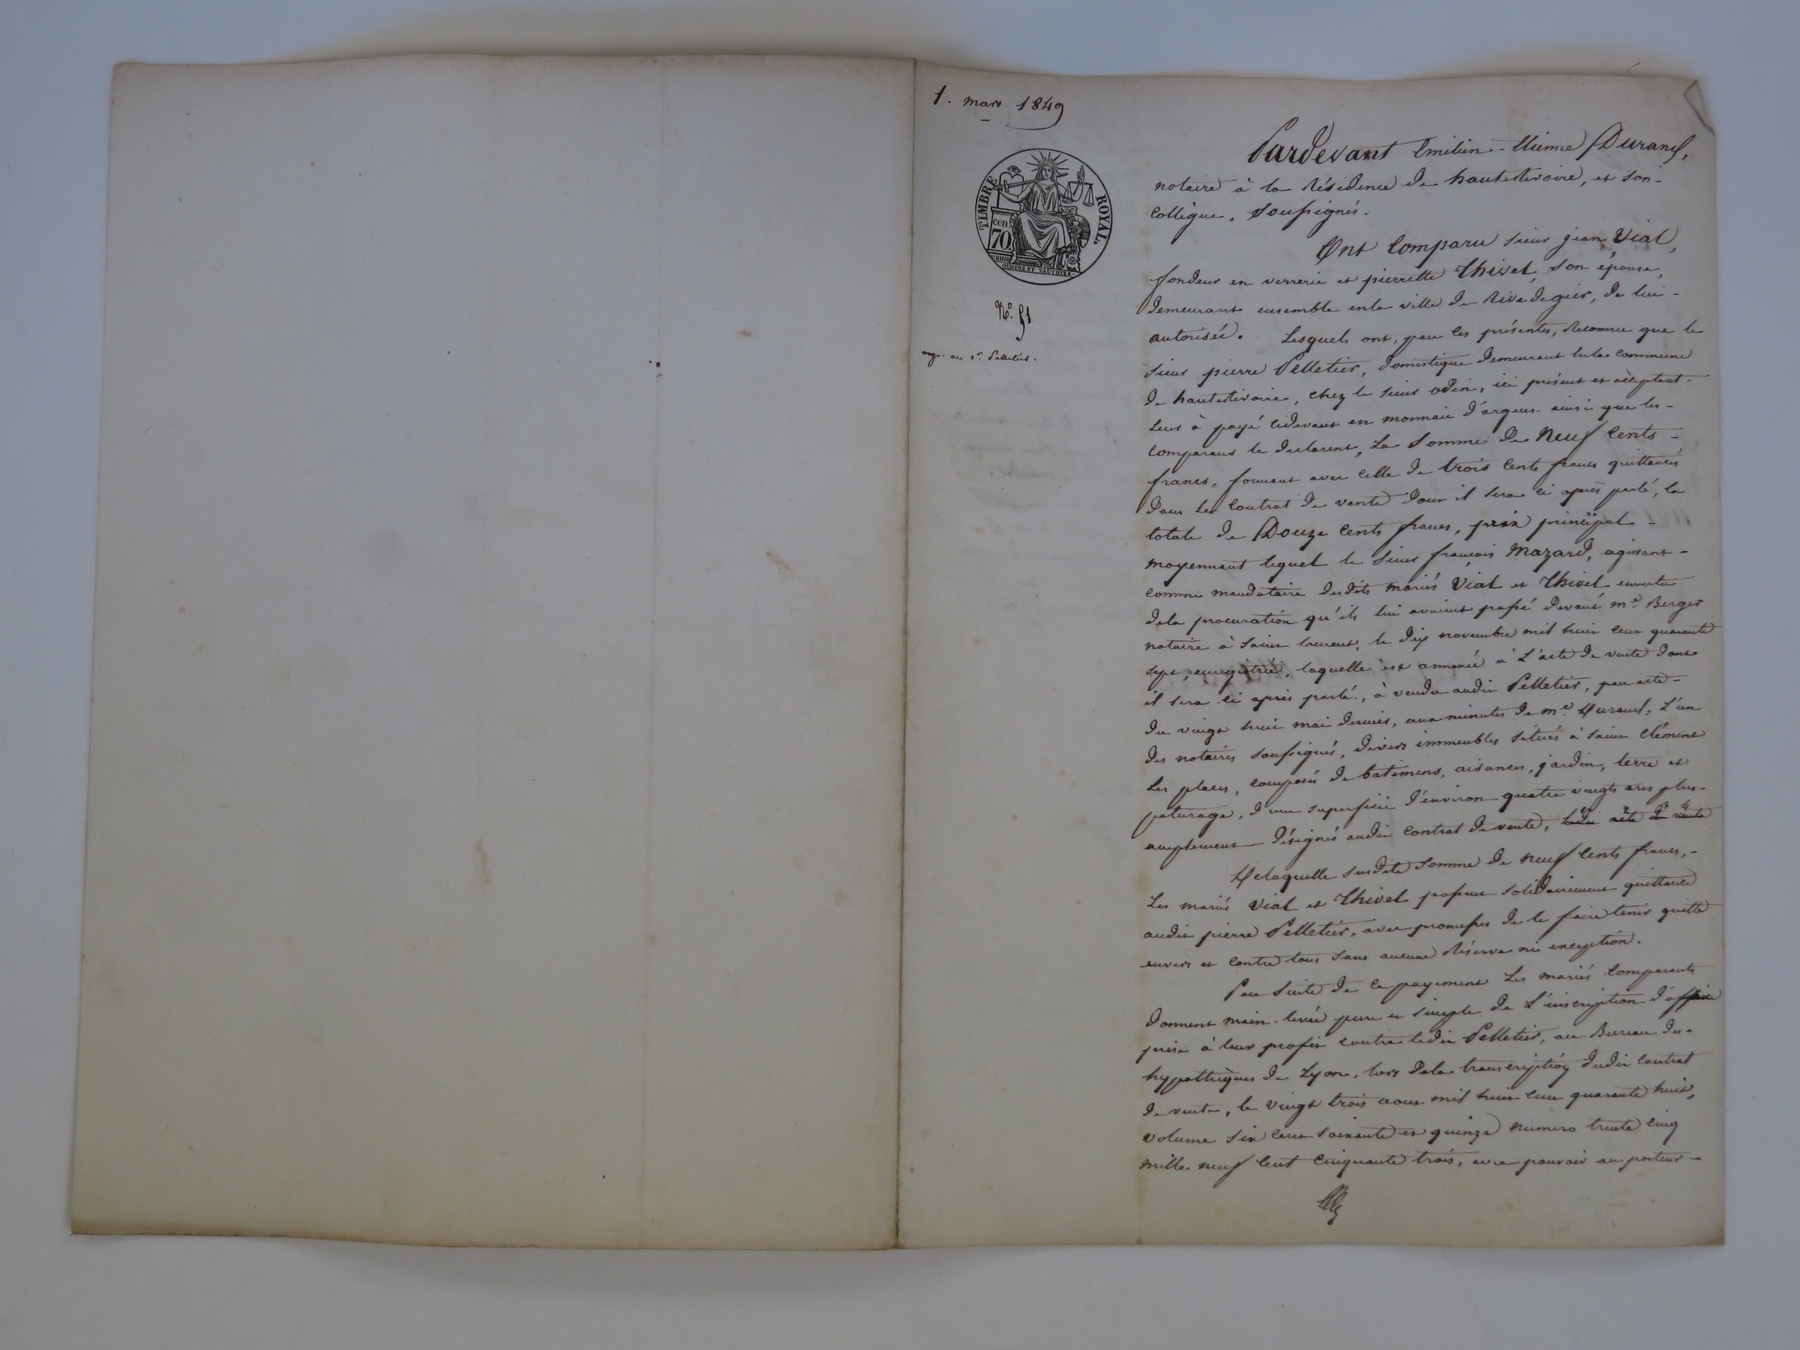 1. mars 1849
TIMBRE ROYAL
cen 70
N.° 51
exp. au s.r Pelletier.
Pardevant Emilien-Etienne Durand,
notaire à la Résidence de hauterivoire, et son-
Collègue, soussignés.
Ont Comparu sieur jean Vial,
fondeur en verrerie et pierrette Thivel, son épouse,
demeurant ensemble enla ville de Rive de gier, de lui-
autorisée. Lesquels ont, par les présentes, Reconnu que le
sieur pierre Pelletier, domestique demeurant enla commune
de hauterivoire, chez le sieur odin, ici présent et acceptant.
Leur à payé cidevant en monnaie d'argent ainsi que les-
comparans le déclarent, La Somme de Neuf Cents-
francs, formant avec celle de trois Cents francs quittancés
dans le Contrat de vente dont il sera ci après parlé, la
totale de Douze Cents francs, prix principal-
moyennant lequel le sieur françois Mazard, agissant-
comme mandataire desdits mariés Vial et Thivel envertu
dela procuration qu'ils lui avaient passé devant m.e Berger
notaire à Saint Laurent, le dix novembre mil huit cent quarante
sept, enregistrée, laquelle est annexée à L'acte de vente dont
il sera ci après parlé, à vendu audit Pelletier, par acte-
du vingt huit mai dernier, aux minutes de m.e Durand, L'un
des notaires soussignés, divers immeubles situés à Saint Clément
Les places, composés de batimens, aisances, jardin, terre et
paturage, d'une superficie d'environ quatre vingts ares plus-
amplement désignés audit contrat de vente, ledit acte de vente
Delaquelle susdite Somme de neuf Cents francs,-
Les mariés Vial et Thivel passent solidairement quittance
audit pierre Pelletier, avec promesses de le faire tenir quitte
envers et contre tous sans aucune Réserve ni exception.
Par Suite de ce payement Les mariés Comparants
donnent main-levée pure et simple de L'inscription d'office
prise à leur profit contre ledit Pelletier, au Bureau des-
hypothèques de Lyon, lors dela transcription dudit Contrat
de vente, le vingt trois aout mil huit cent quarante huit,
volume six cent soixante et quinze numero trente cinq
mille neuf cent Cinquante trois, avec pouvoir au porteur-